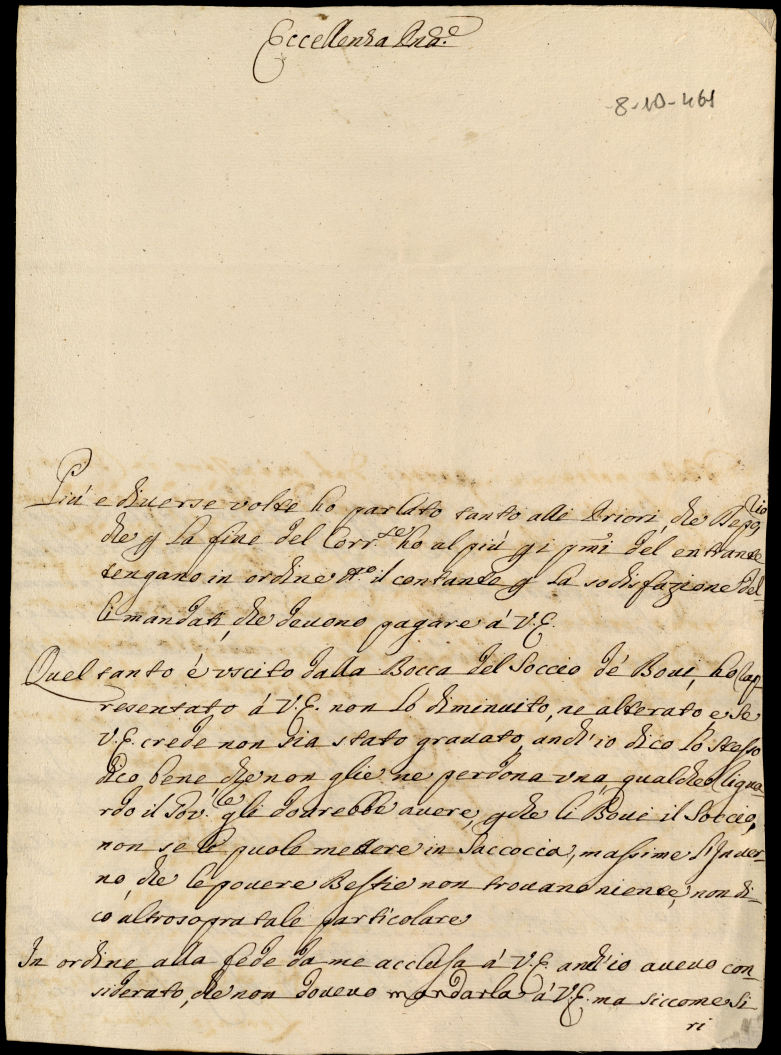 Eccellenza Pnd.e
8-10-461
Piú e diverse volte ho parlato tanto alli Priori, che Depo,
che p la fine del Corr.te ho al piú p i pmi del entrante
tengano in ordine il contante p la sodisfazione del-
li mandati, che devono pagare á V.E.
Quel tanto é uscito dalla Bocca del Soccio dé Bovi, ho rap-
resentato á V.E. non lo diminuito, ne alterato, e se
V.E. crede non sia stato gravato, anch'io dico lo stesso
dico bene che non glie ne perdona una, qualche sigua-
rdo il Gov.re gli dovrebbe avere, p che li Bovi il Soccio,
non se le puole mettere in saccoccia, massime l'Inver-
no, che le povere Bestie non trovano niente, non di-
co altro sopra tale particolare
In ordine alla fede da me acclusa á V.E. anch'io avevo con-
siderato, che non dovevo mandarla á V.E. ma siccome si-
ri